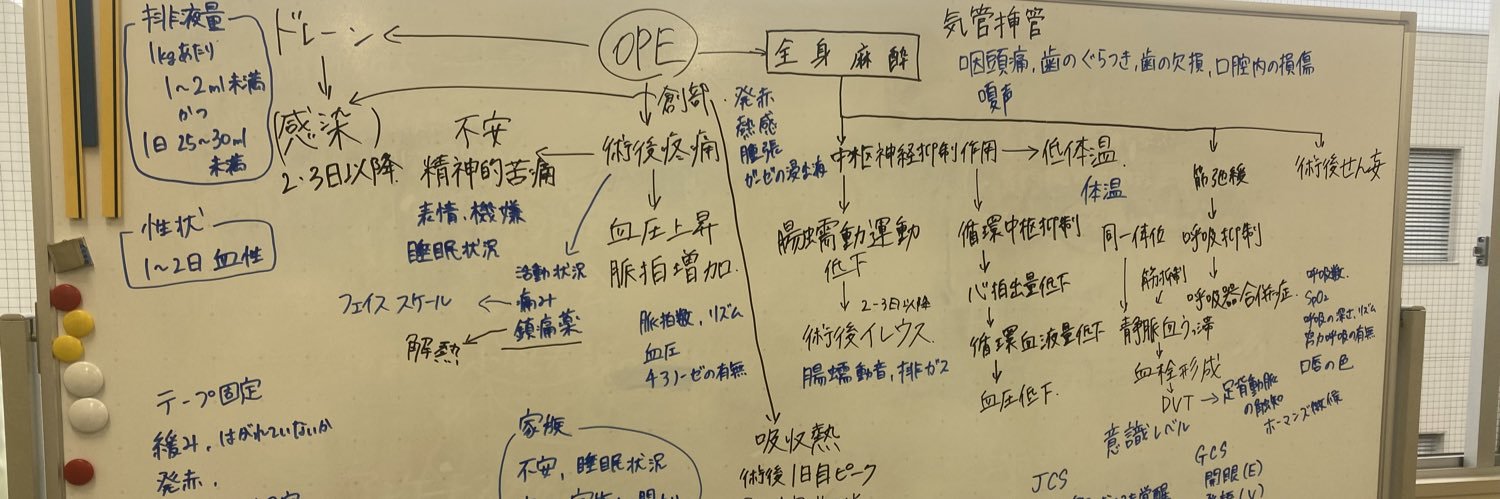 排液量
1kgあたり
1〜2ml未満
かつ
1日25〜30ml
未満
性状
1〜2日 血性
ドレーン
(感染)
2.3日以降
OPE
創部
発赤
熱感
腫張
ガーゼの浸出液
不安
精神的苦痛
表情、機嫌
睡眠状況
術後疼痛
血圧上昇
脈拍増加.
脈拍数、リズム
血圧
チアノーゼの有無
活動状況
痛み
鎮痛薬
フェイススケール
解熱
テープ固定
緩み、はがれていないか
発赤、
家族
不安、睡眠状況
吸収熱
術後1日目ピーク
全身麻酔
気管挿管
咽頭痛,歯のぐらつき,歯の欠損,口腔内の損傷
嗄声
中枢神経抑制作用
低体温
体温
腸蠕動運動
低下
2-3日以降
術後イレウス
腸蠕動音、排ガス
循環中枢抑制
心拍出量低下
循環血液量低下
血圧低下.
筋弛緩
同一体位
呼吸抑制
筋抑制
呼吸器合併症.
静脈血うっ滞
血栓形成
DVT
足背動脈
の触知
ホーマンズ徴候
呼吸数
SpO2
呼吸の深さ、リズム
努力呼吸の有無
口唇の色
術後せん妄
意識レベル
JCS
GCS
開眼(E)